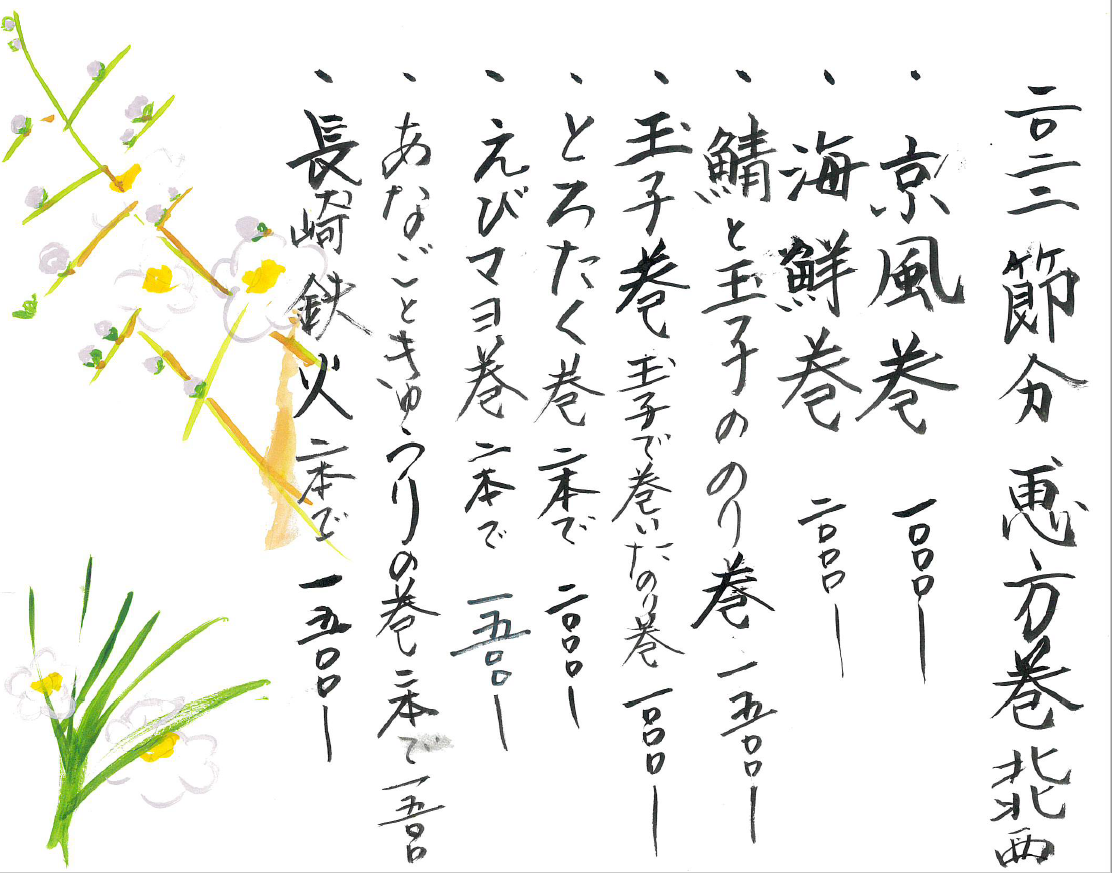 二〇二二 節分 恵方巻 北北西
・京風巻 一〇〇〇ー
・海鮮巻 二〇〇〇ー
・鯖と玉子ののり巻 一五〇〇ー
・玉子巻 玉子で巻いたのり巻 一〇〇〇ー
・とろたく巻 二本で 二〇〇〇ー
・えびマヨ巻 二本で 一五〇〇ー
・あなごときゅうりの巻 二本で 一五〇〇
・長崎鉄火 二本で 一五〇〇ー